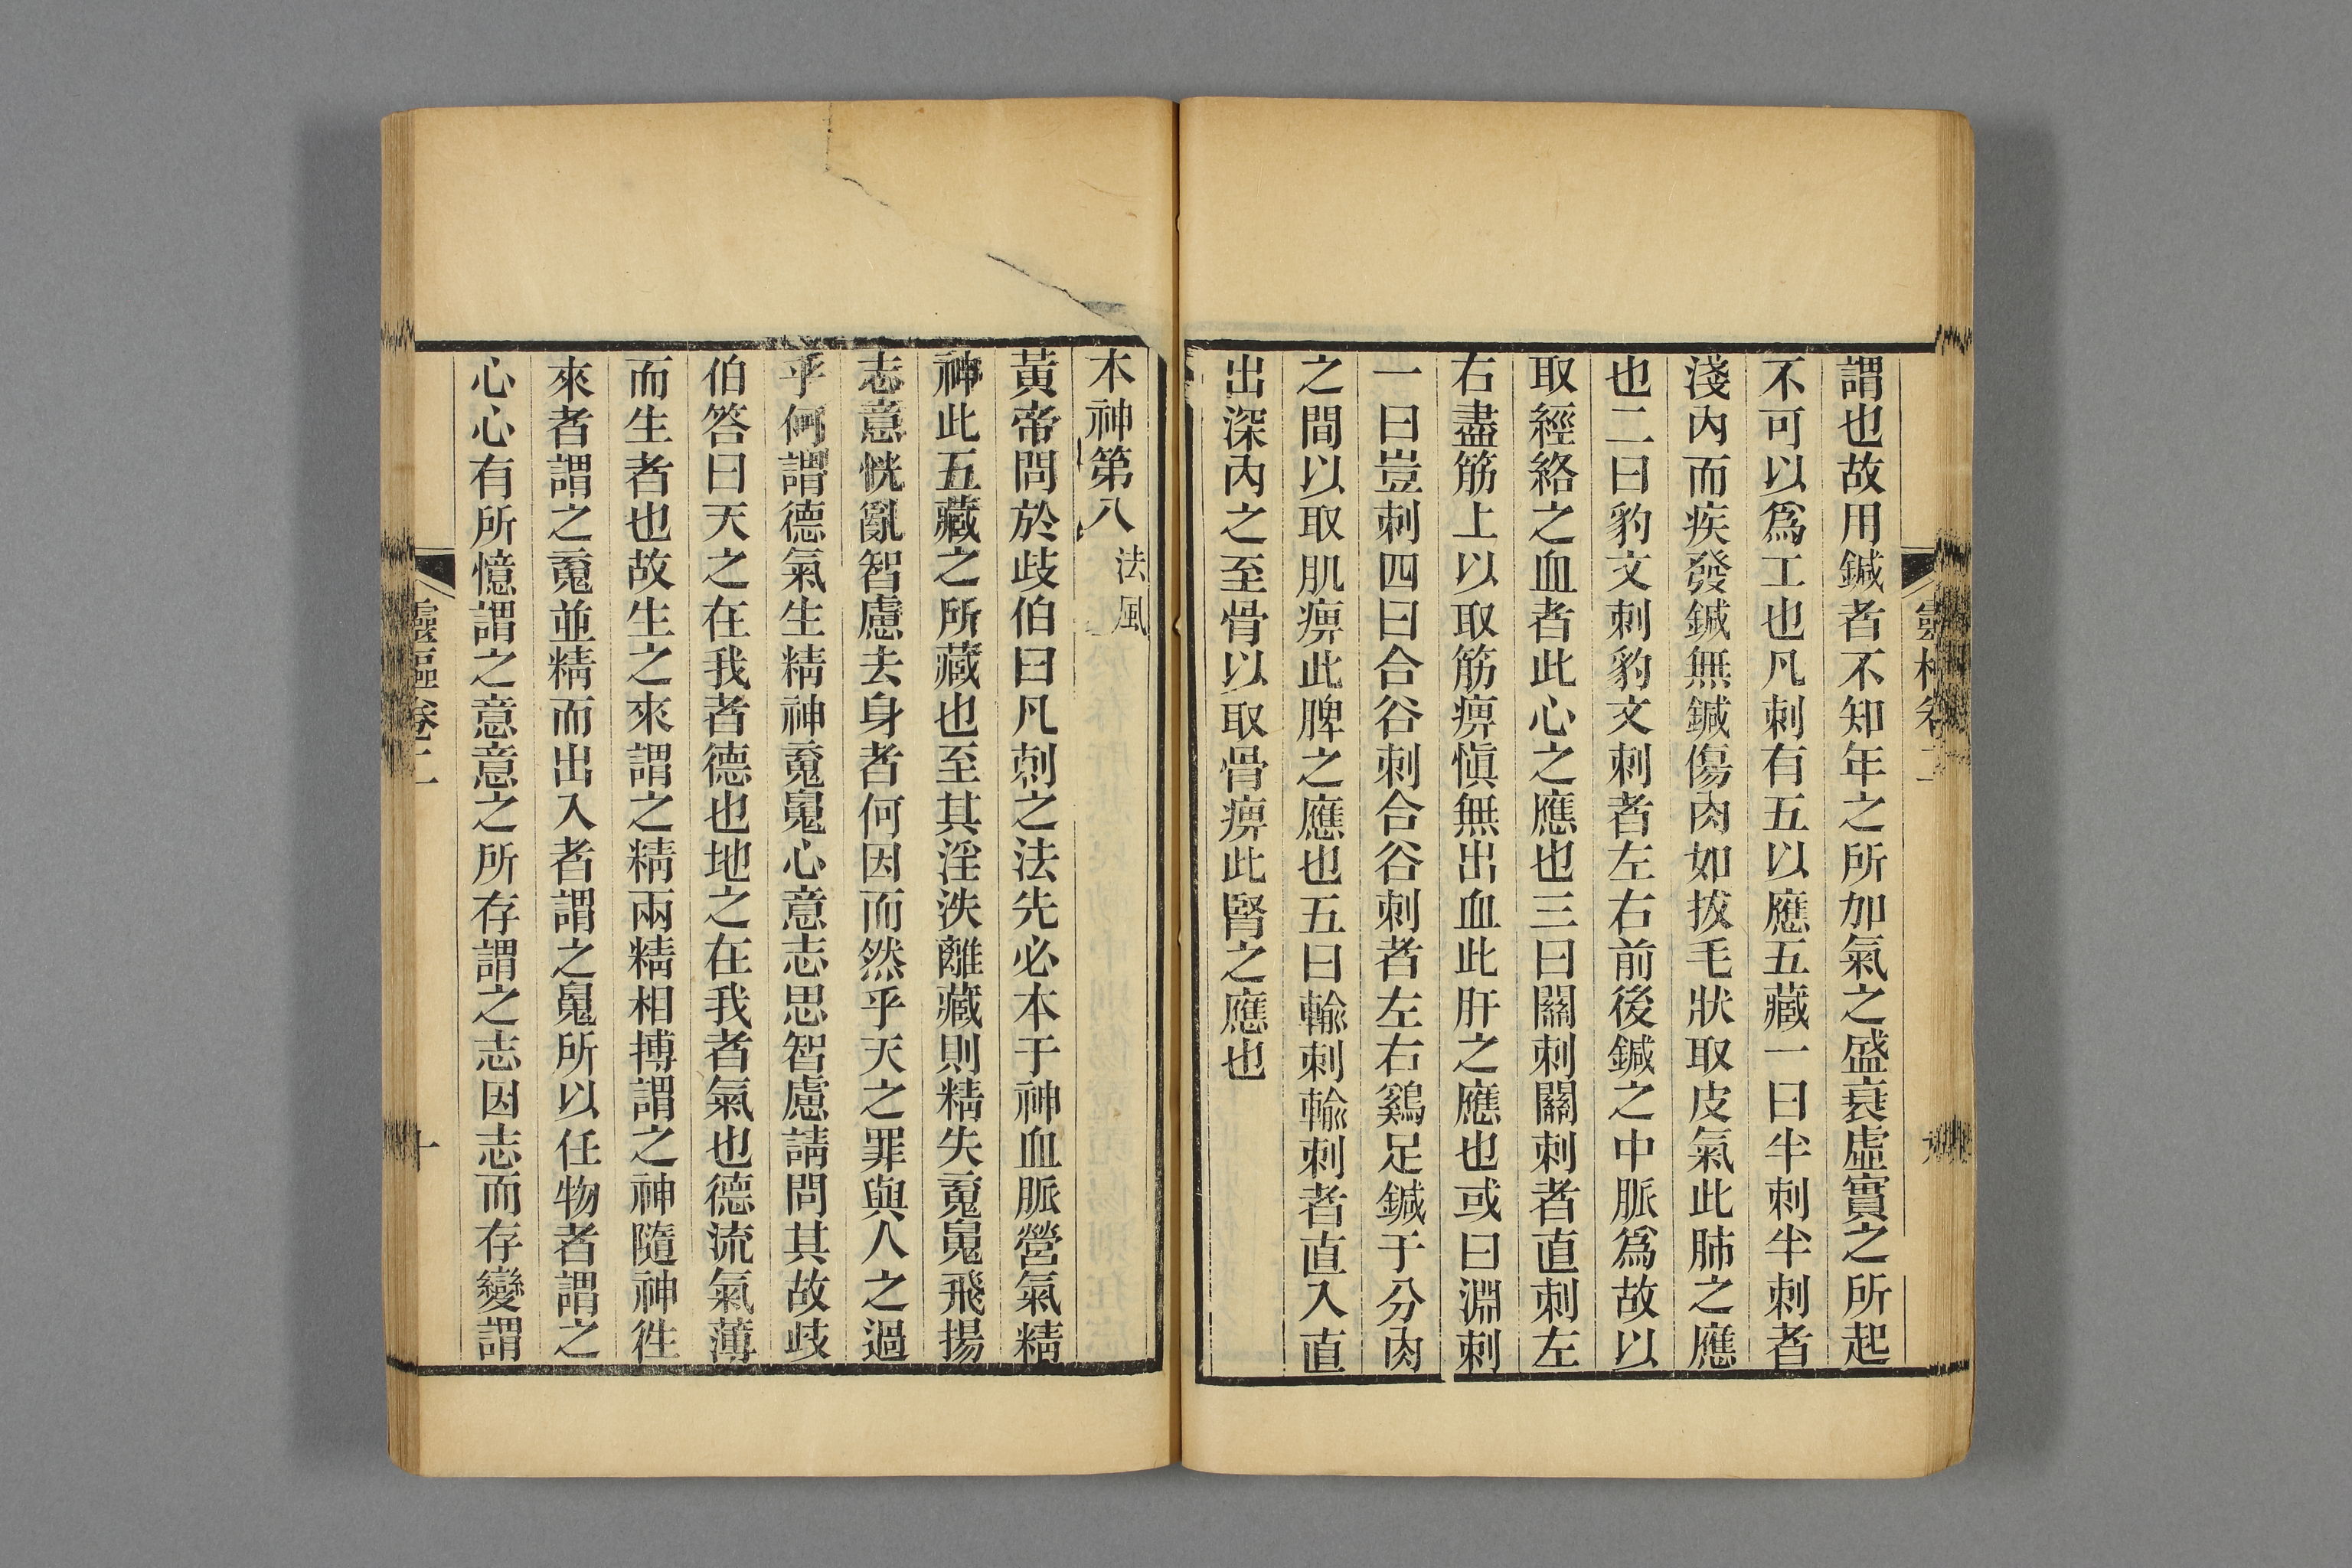 謂也故用鍼者不知年之所加氣之盛衰虛實之所起
不可以爲工也凡刺有五以應五藏一曰半刺半刺者
淺內而疾發鍼無鍼傷肉如拔毛狀取皮氣此肺之應
也二曰豹文刺豹文刺者左右前後鍼之中脈爲故以
取經絡之血者此心之應也三曰關刺關刺者直刺左
右盡筋上以取筋痹愼無出血此肝之應也或曰淵刺
一曰豈刺四曰合谷刺合谷刺者左右鷄足鍼于分肉
之間以取肌痹此脾之應也五曰輸刺輸刺者直入直
出深內之至骨以取骨痹此腎之應也
本神第八 法風
黃帝問於歧伯曰凡刺之法先必本于神血脈營氣精
神此五藏之所藏也至其淫泆離藏則精失䰟䰠飛揚
志意恍亂智慮去身者何因而然乎天之罪與人之過
乎何謂德氣生精神䰟䰠心意志思智慮請問其故歧
伯答曰天之在我者德也地之在我者氣也德流氣薄
而生者也故生之來謂之精兩精相搏謂之神隨神徃
來者謂之䰟並精而出入者謂之䰠所以任物者謂之
心心有所憶謂之意意之所存謂之志因志而存變謂
靈樞卷二
十